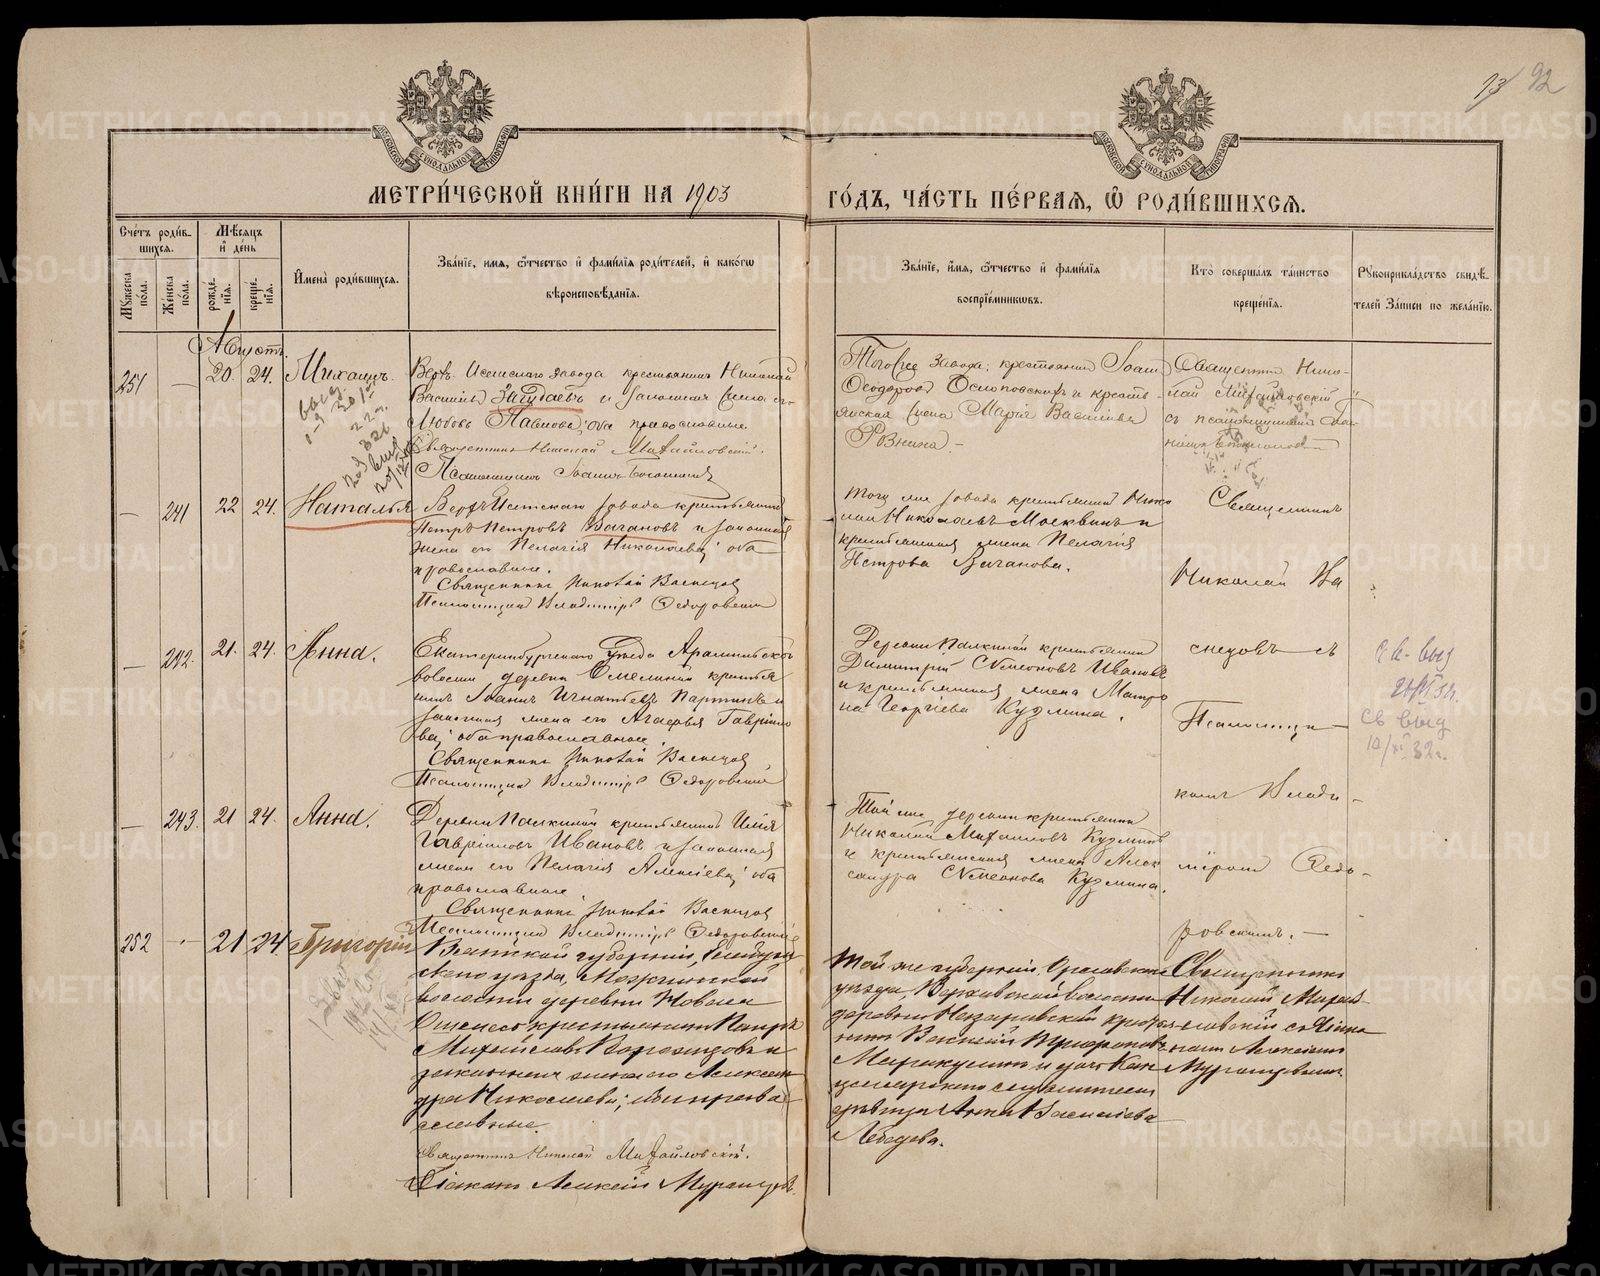 93 92
МОСКОВСКОЙ СУНОДАЛЬНОЙ ТИПОГРАФІИ
МОСКОВСКОЙ СУНОДАЛЬНОЙ ТИПОГРАФІИ
МЕТРИ́ЧЕСКОЙ КНИ́ГИ НА 1903
ГО́ДЪ, ЧА́СТЬ ПЕ́РВАЯ, Ѡ РОДИ́ВШИХСЯ.
Сче́тъ роди́в-
шихся.
Мꙋжеска по́ла.
Же́нска по́ла.
Мѣ́сяцъ
и҆ де́нь
рожде́-
нія.
креще́-
нія.
И҆мена̀ роди́вшихся.
Зва́ніе, и҆мя, ѻ҆́тчество и҆ фами́лія роди́телей, и҆ како́гѡ
вѣроисповѣ́данія.
Зва́ніе, и҆́мя, ѻ҆́тчество и҆ фами́лія
воспрїе́мниковъ.
Кто̀ соверша́лъ та́инство
креще́нія.
Рꙋкоприкла́дство свидѣ́-
телей За́писи по жела́нію.
Августъ.
251 — 20. 24. Михаилъ.
Верх-Исетскаго завода крестьянинъ Николай
Васильевъ Загудаевъ и законная жена его
Любовь Павлова; оба православные
Священникъ Николай Михайловскій.
Псаломщикъ Іоаннъ Богомоловъ
Того же завода, крестьянинъ Іоаннъ
Феодоровъ Осиповскихъ и кресть-
янская жена Марія Васильева
Рознина.
Священникъ Нико-
лай Михайловскій
съ псаломщикомъ Іоан-
номъ
— 241 22 24. Наталья
Верхъ Исетскаго завода крестьянинъ
Петръ Петровъ Ваганов и законная
жена его Пелагія Николаева; оба
православные.
Священникъ Николай Васнецов
Псаломщикъ Владимиръ Федоровский
Того же завода крестьянинъ Нико
лай Николаевъ Москвинъ и
крестьянская жена Пелагія
Петрова Ваганова.
Священникъ
Николай Ва
снецовъ съ
Псаломщи—
комъ Влади-
міромъ Федо-
ровскимъ. —
— 242. 21. 24. Анна.
Екатеринбургскаго уѣзда Арамильской
волости деревни кресть
янинъ Іоаннъ Игнатьевъ Партинъ и
законная жена его Агафья Гаврило
ва; оба православные
Священникъ Николай Васнецов
Псаломщикъ Владимиръ Федоровский
Деревни Палкиной крестьянинъ
Димитрій Симеоновъ Ивановъ
и крестьянская жена Матро
на Георгіева Кузмина.
св выд
— 243. 21 24. Анна.
Деревни Палкиной крестьянинъ Илія
Гавріиловъ Ивановъ и законная
жена его Пелагія Алексіева; оба
православные.
Священникъ Николай Васнецов
Псаломщикъ Владимиръ Федоровский
Той же деревни крестьянинъ
Николай Михаиловъ Кузминъ
и крестьянская жена Алек
сандра Симеонова Кузмина.
252 — 21 24. Григорій
Вятской губерніи,
уѣзда,
волости деревни Новаго
крестьянинъ Петръ
Михайловъ и
законная жена его Алексан
дра Николаева; оба право
славные.
Священникъ Николай Михайловскій.
Діаконъ Алексій Мурашевъ.
Той же губерніи, Орловскаго
уѣзда, волости
деревни крестья-
нинъ Василій Трифоновъ
и дочь кан
целярскаго служителя
дѣвица Анна Василіева
Лебедева.
Священникъ
Николай Михай-
ловскій съ діако-
номъ Алексіемъ